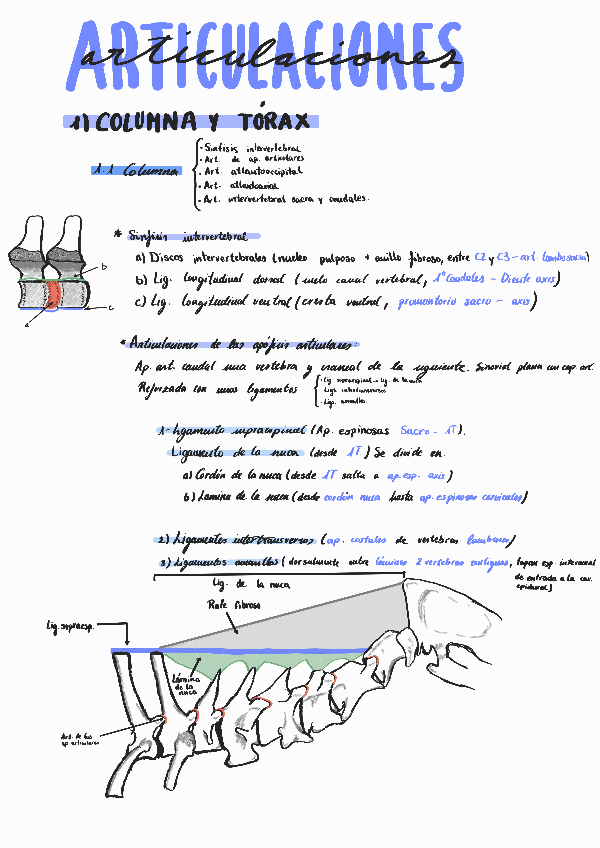 ARTICULACIONES
articulaciones
1) COLUMNA Y TÓRAX
1.1 Columna
· Sínfisis intervertebral
· Art. de ap. articulares
· Art. atlantooccipital
· Art. atlantoaxial
· Art. intervertebral sacra y caudales.
* Sínfisis intervertebral
a) Discos intervertebrales (nucleo pulposo + anillo fibroso, entre C2 y C3 - art. lumbosacra)
b) Lig. longitudinal dorsal (suelo canal vertebral, 1º Caudales - Diente axis)
c) Lig. longitudinal ventral (cresta ventral, promontorio sacro - axis)
b
c
a
* Articulaciones de las apófisis articulares:
Ap. art. caudal una vertebra y craneal de la siguiente. Sinovial plana con cap. art.
Reforzada con unos ligamentos
· Lig. supraespinal - Lig. de la nuca
· Ligs. intertransversos
· Ligs. amarillos.
1- Ligamento supraespinal (Ap. espinosas Sacro - 1T).
Ligamento de la nuca (desde 1T) Se divide en:
a) Cordón de la nuca (desde 1T salta a ap. esp. axis)
b) Lamina de la nuca (desde cordón nuca hasta ap. espinosas cervicales)
2) Ligamentos intertransversos (ap. costales de vertebras lumbares)
3) Ligamentos amarillos (dorsalmente entre láminas 2 vertebras contiguas, tapan esp. interarcual
de entrada a la cav.
epidural)
Lig. de la nuca
Rafe fibroso
Lig. supraesp.
Lámina
de la
nuca
Art. de las
ap. articulares